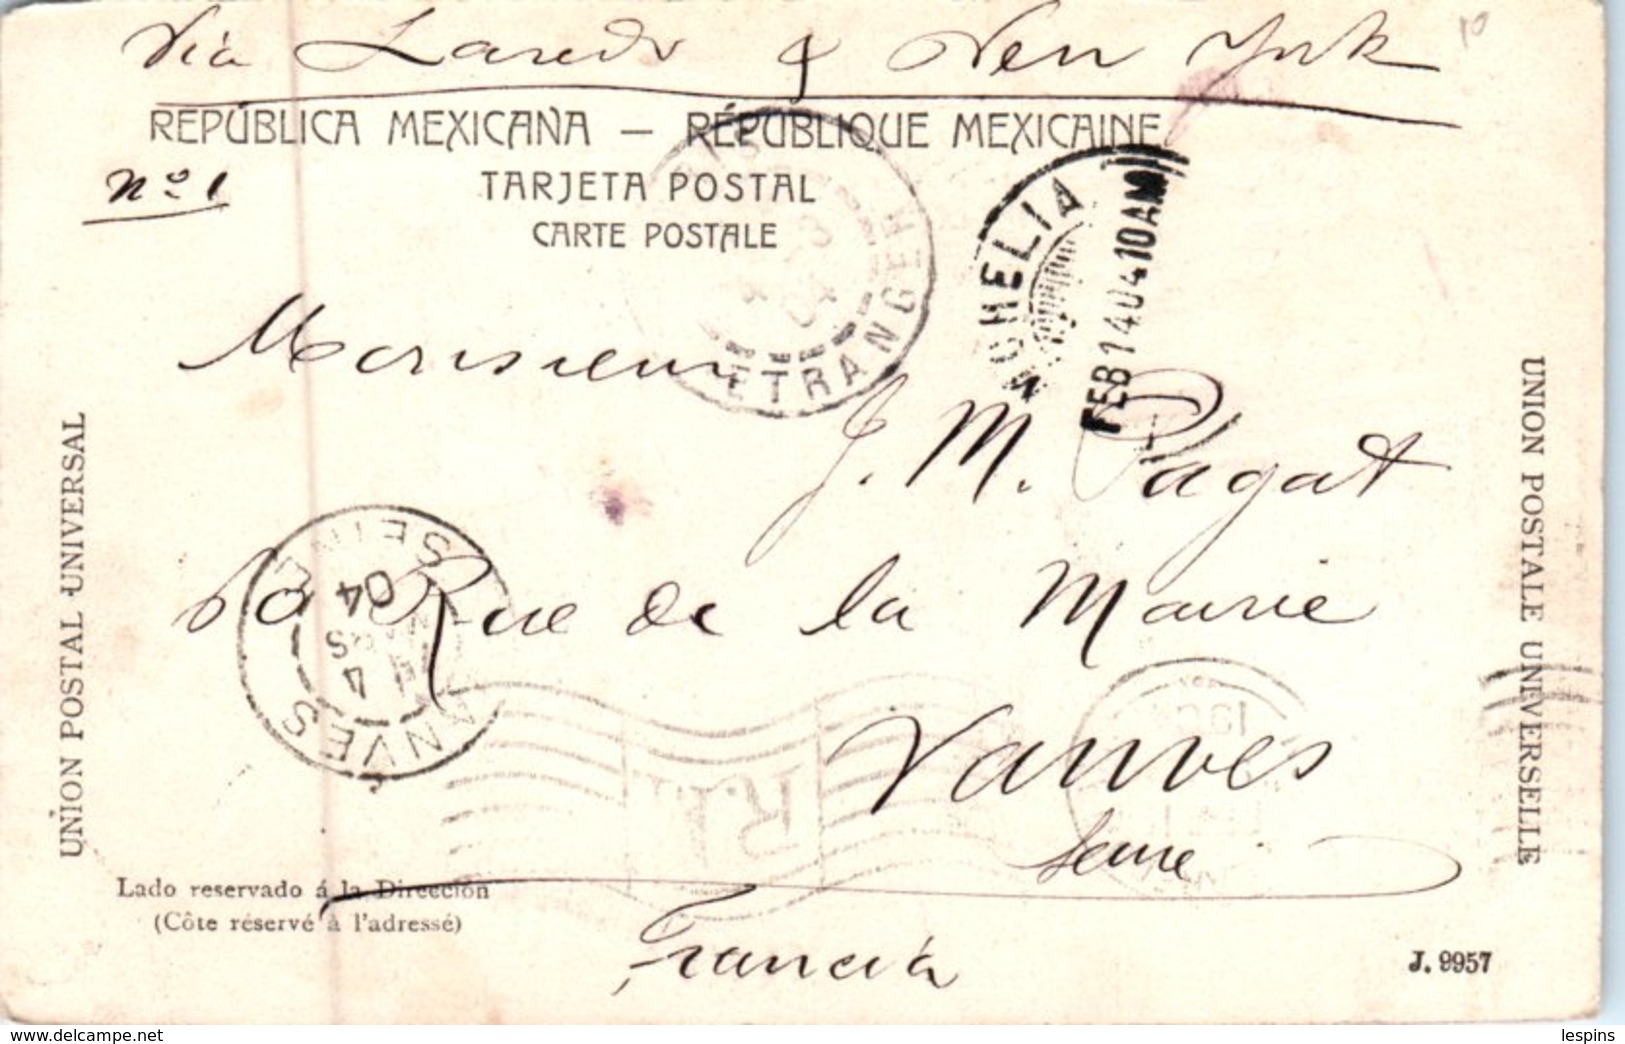 Via Laredo & New York
10
REPÚBLICA MEXICANA — RÉPUBLIQUE MEXICAINE
Nº 1
TARJETA POSTAL
CARTE POSTALE
ETRANGER
MORELIA
FEB 14 04 10 AM
Monsieur
J. M. Pagat
60 Rue de la Mairie
Vanves
Seine
Francia
VANVES
SEINE
4
04
UNION POSTAL UNIVERSAL
UNION POSTALE UNIVERSELLE
Lado reservado á la Dirección
(Côte réservé à l'adressé)
J. 9957
www.delcampe.net
lespins